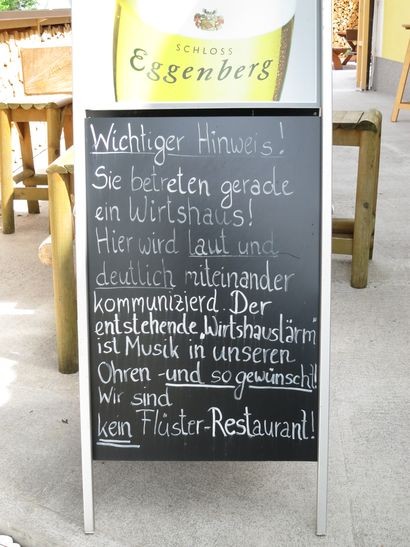 SCHLOSS
Eggenberg
Wichtiger Hinweis!
Sie betreten gerade
ein Wirtshaus!
Hier wird laut und
deutlich miteinander
kommunizierd. Der
entstehende „Wirtshauslärm"
ist Musik in unseren
Ohren - und so gewünscht!
Wir sind
kein Flüster-Restaurant!